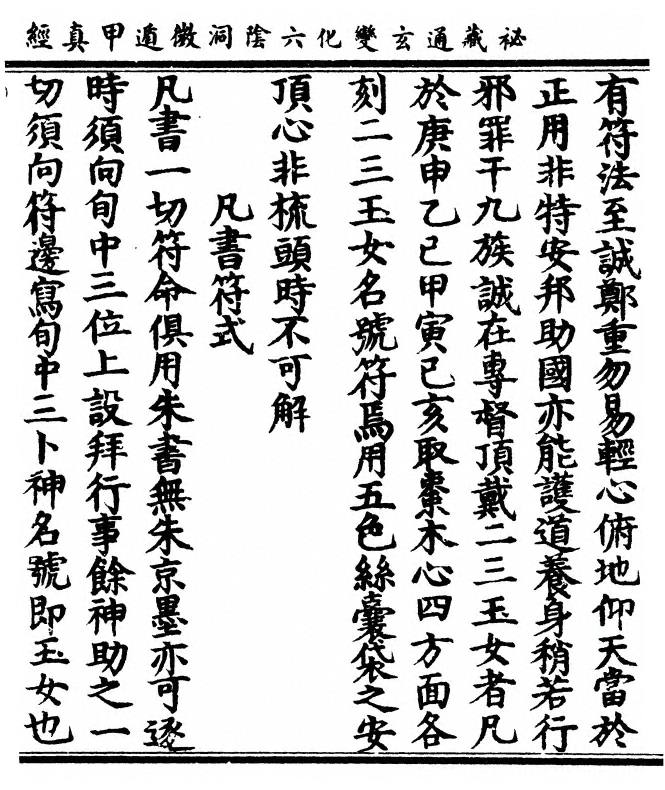 祕藏通玄變化六陰洞微遁甲真經
有符法至誠鄭重勿易輕心俯地仰天當於
正用非特安邦助國亦能護道養身稍若行
邪罪干九族誠在專督頂戴二三玉女者凡
於庚申乙已甲寅已亥取棗木心四方面各
刻二三玉女名號符焉用五色絲囊袋之安
頂心非梳頭時不可解
凡書符式
凡書一切符命俱用朱書無朱京墨亦可逐
時須向旬中三位上設拜行事餘神助之一
切須向符邊寫旬中三卜神名號即玉女也